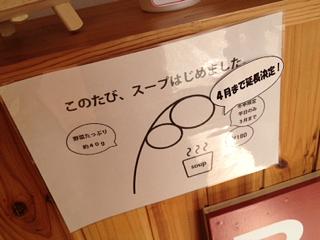 このたび、スープはじめました
4月まで延長決定！
野菜たっぷり
約40g
冬季限定
平日のみ
3月まで
¥180
soup